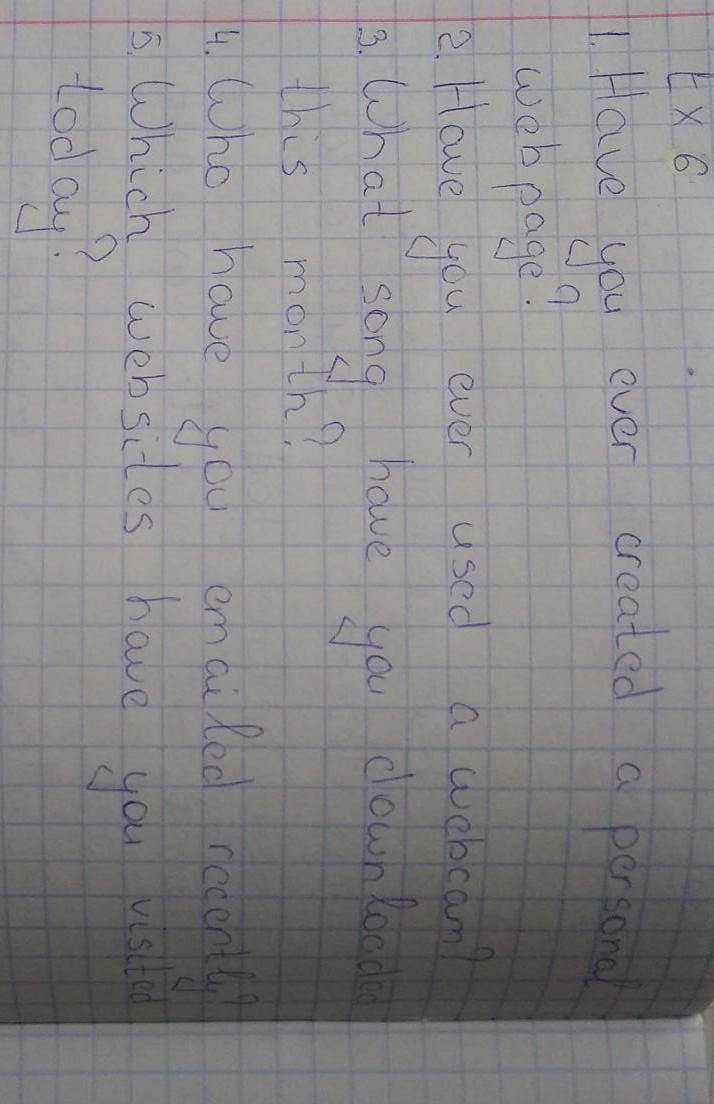 Ex 6
1. Have you ever created a personal
webpage?
2. Have you ever used a webcam?
3. What song have you downloaded
this month?
4. Who have you emailed recently?
5. Which websites have you visited
today?